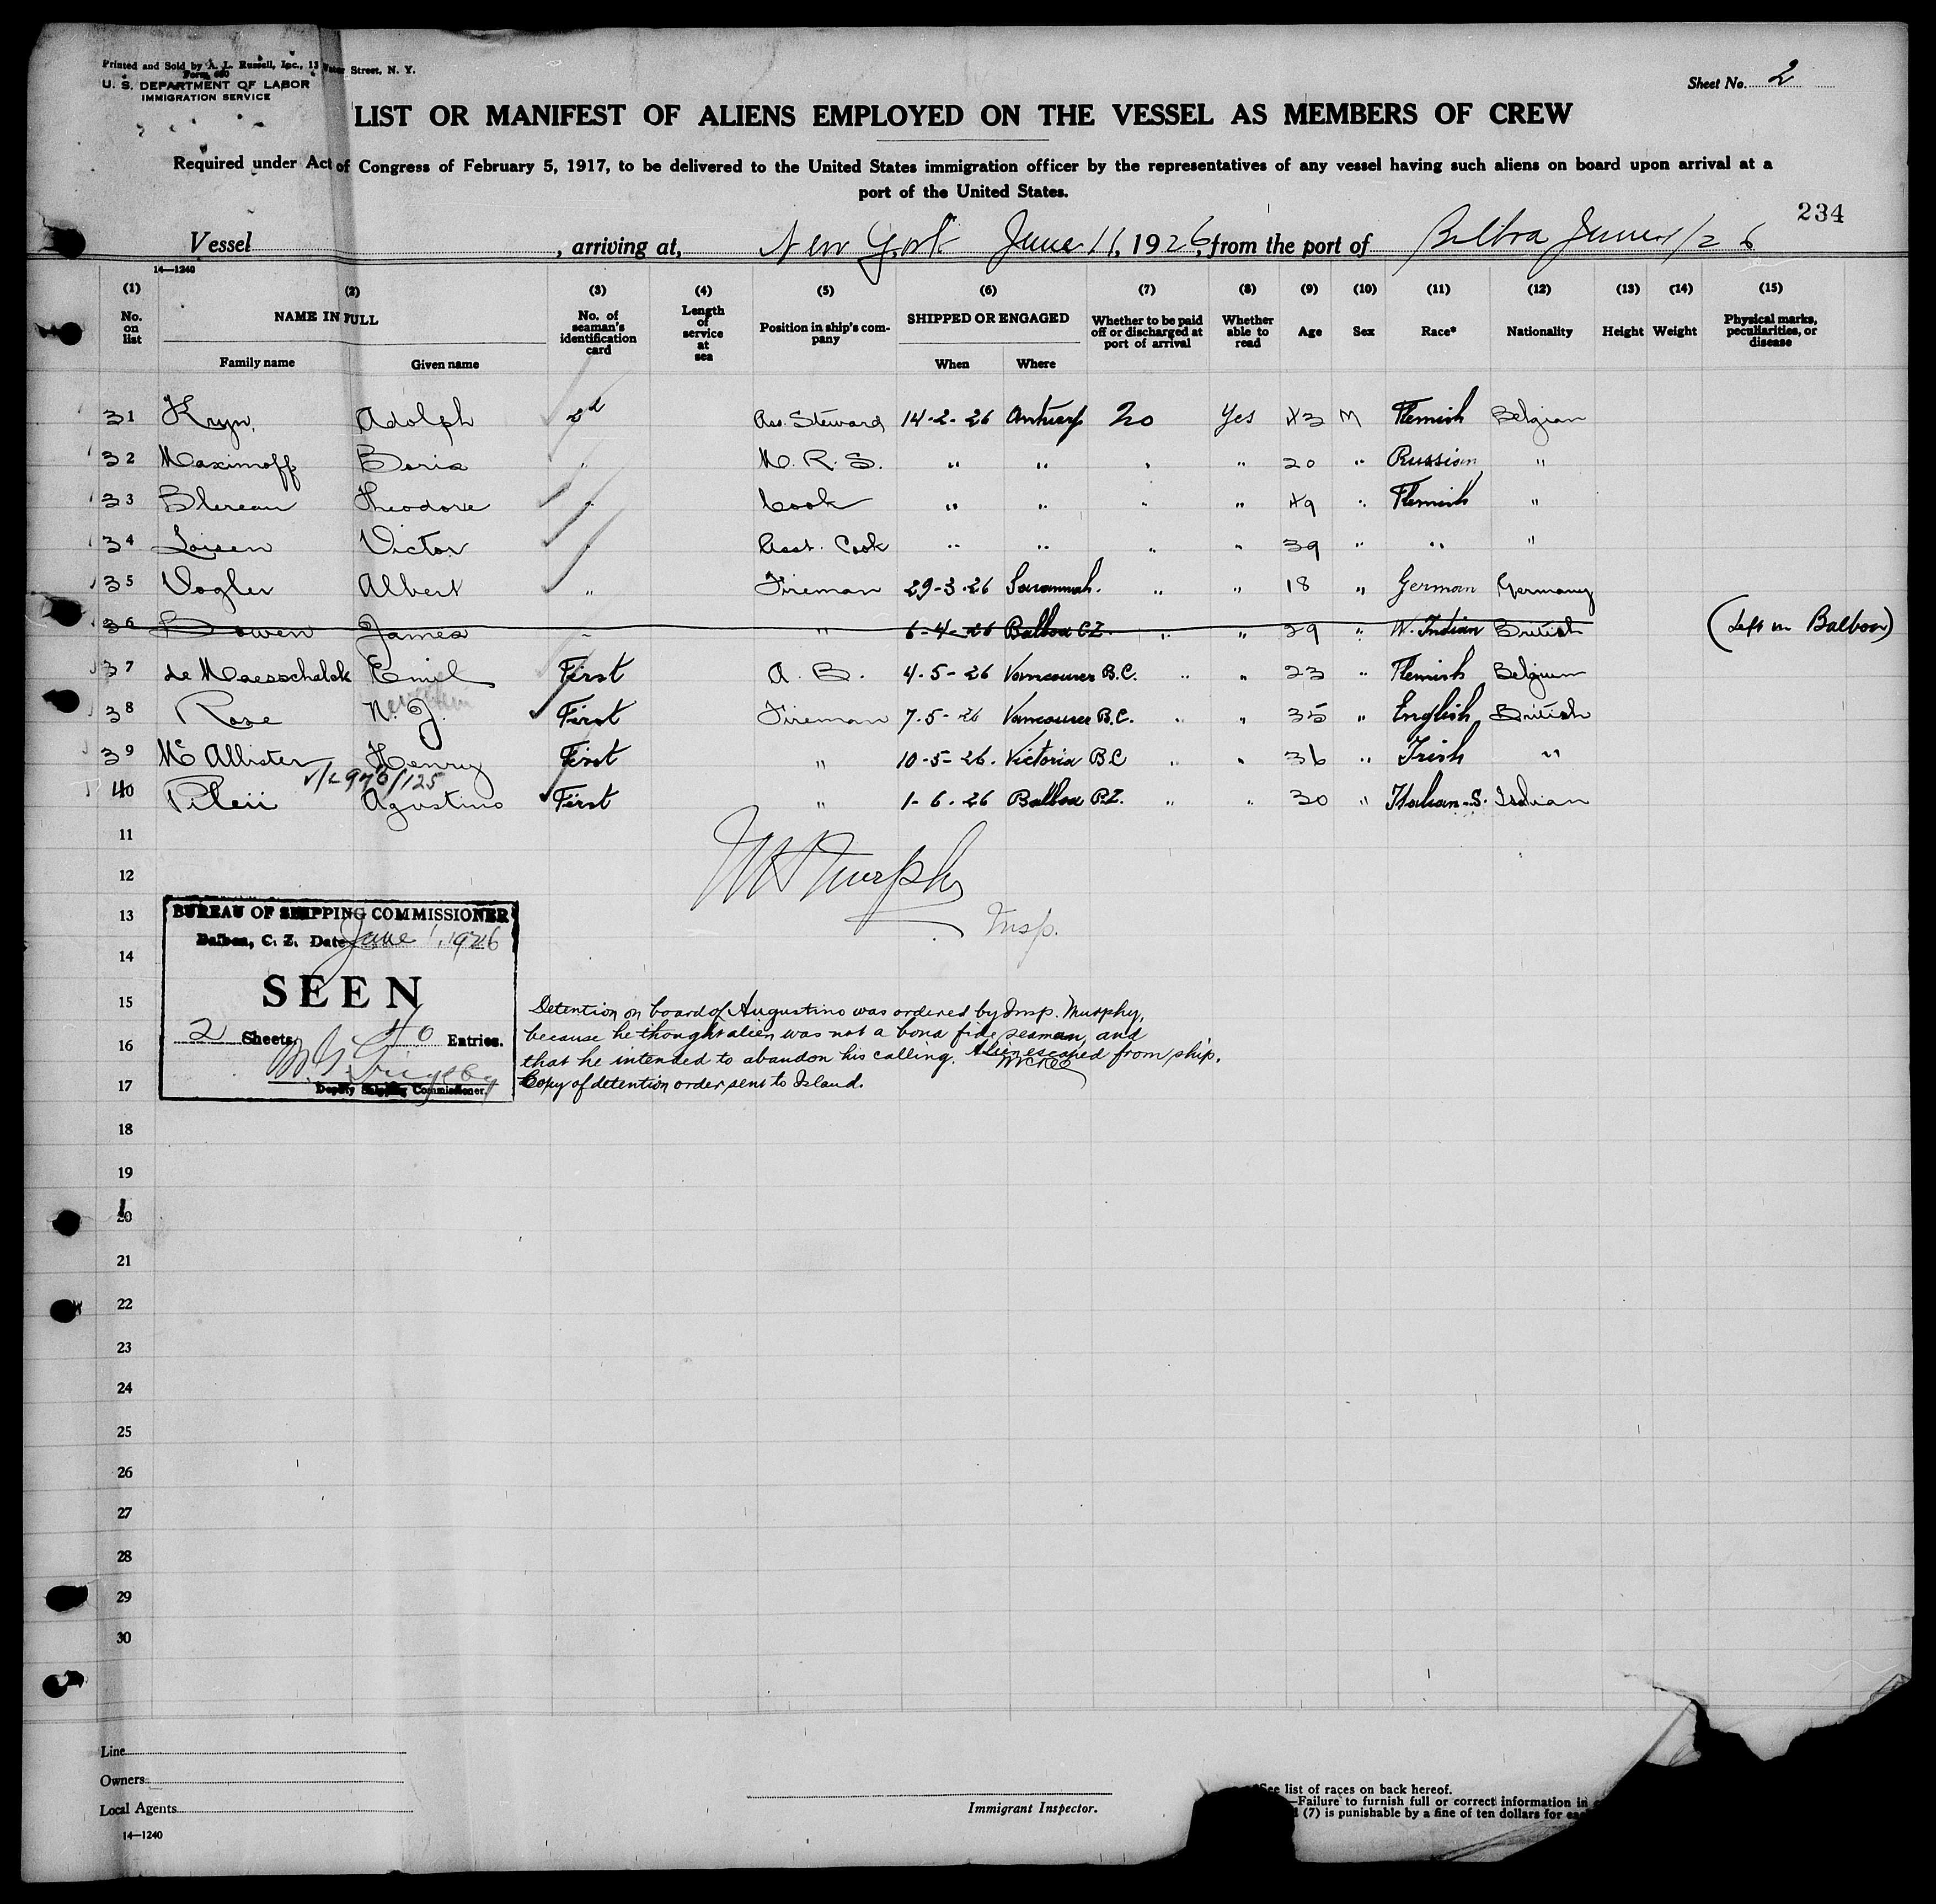 Printed and Sold by A. L. Russell, Inc., 13 Water Street, N. Y.
Form 680
U. S. DEPARTMENT OF LABOR
IMMIGRATION SERVICE
Sheet No. 2
LIST OR MANIFEST OF ALIENS EMPLOYED ON THE VESSEL AS MEMBERS OF CREW
Required under Act of Congress of February 5, 1917, to be delivered to the United States immigration officer by the representatives of any vessel having such aliens on board upon arrival at a
port of the United States.
234
Vessel , arriving at, New York June 11, 1926, from the port of Balboa June 1/26
14—1240
(1) (2) (3) (4) (5) (6) (7) (8) (9) (10) (11) (12) (13) (14) (15)
No. on list NAME IN FULL No. of seaman's identification card Length of service at sea Position in ship's company SHIPPED OR ENGAGED Whether to be paid off or discharged at port of arrival Whether able to read Age Sex Race* Nationality Height Weight Physical marks, peculiarities, or disease
Family name Given name When Where
31 Kryn, Adolph 2d Ass. Steward 14-2-26 Antwerp No Yes 43 M Flemish Belgian
32 Maximoff Boris " M. R. S. " " " " 20 " Russian "
33 Blereau Theodore " Cook " " " " 49 " Flemish "
34 Loisen Victor " Asst. Cook " " " " 39 " " "
35 Vogler Albert " Fireman 29-3-26 Savannah. " " 18 " German Germany
36 Bowen James " " 6-4-26 Balboa C.Z. " " 29 " W. Indian British (Left in Balboa)
37 de Maesschalck Emil First A. B. 4-5-26 Vancouver B.C. " " 23 " Flemish Belgium
38 Rose N. J. First Fireman 7-5-26 Vancouver B.C. " " 35 " English British
39 McAllister Henry First " 10-5-26. Victoria B.C " " 36 " Irish "
976/125
40 Pileii Agustino First " 1-6-26 Balboa P.Z. " " 30 " Italian-S. Italian
11
12
Murphy
13
Insp.
BUREAU OF SHIPPING COMMISSIONER
Balboa, C. Z. Date June 1, 1926
14
SEEN
15
2 Sheets 40 Entries.
16
Deputy Shipping Commissioner.
17
Detention on board of Augustino was ordered by Insp. Murphy,
because he thought alien was not a bona fide seaman, and
that he intended to abandon his calling. Alien escaped from ship.
Copy of detention order sent to Island.
18
19
20
21
22
23
24
25
26
27
28
29
30
Line
Owners
Local Agents
14—1240
Immigrant Inspector.
*See list of races on back hereof.
—Failure to furnish full or correct information in
(7) is punishable by a fine of ten dollars for